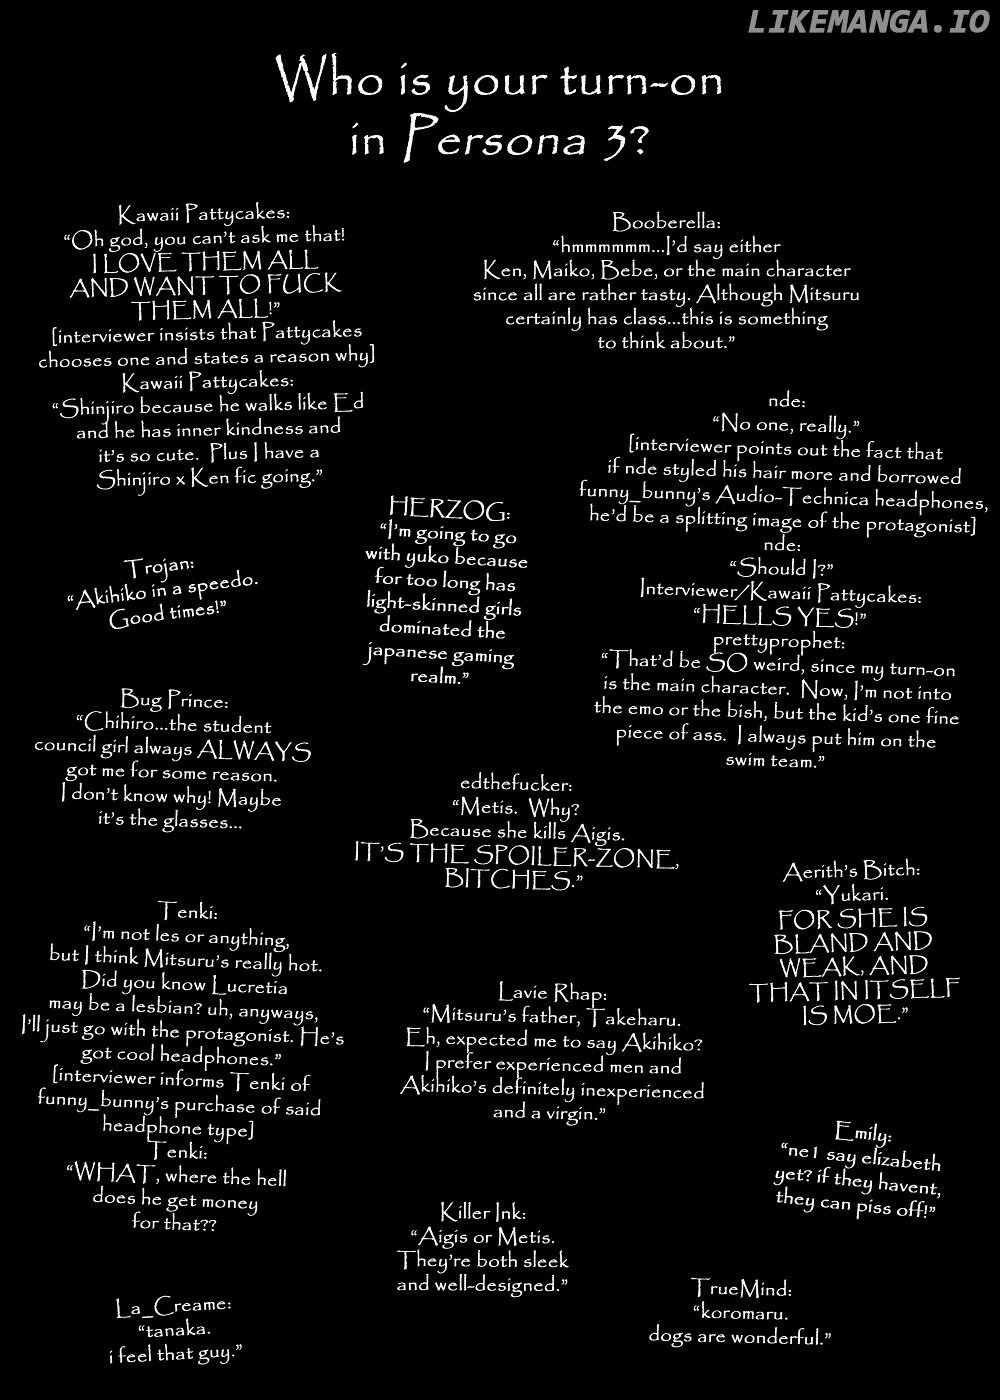 LIKEMANGA.IO
Who is your turn-on
in Persona 3?
Kawaii Pattycakes:
“Oh god, you can’t ask me that!
I LOVE THEM ALL
AND WANT TO FUCK
THEM ALL!”
[interviewer insists that Pattycakes
chooses one and states a reason why]
Kawaii Pattycakes:
“Shinjiro because he walks like Ed
and he has inner kindness and
it’s so cute. Plus I have a
Shinjiro x Ken fic going.”
Booberella:
“hmmmmmm...I’d say either
Ken, Maiko, Bebe, or the main character
since all are rather tasty. Although Mitsuru
certainly has class...this is something
to think about.”
nde:
“No one, really.”
[interviewer points out the fact that
if nde styled his hair more and borrowed
funny_bunny’s Audio-Technica headphones,
he’d be a splitting image of the protagonist]
nde:
“Should I?”
Interviewer/Kawaii Pattycakes:
“HELLS YES!”
prettyprophet:
“That’d be SO weird, since my turn-on
is the main character. Now, I’m not into
the emo or the bish, but the kid’s one fine
piece of ass. I always put him on the
swim team.”
HERZOG:
“I’m going to go
with yuko because
for too long has
light-skinned girls
dominated the
japanese gaming
realm.”
Trojan:
“Akihiko in a speedo.
Good times!”
Bug Prince:
“Chihiro...the student
council girl always ALWAYS
got me for some reason.
I don’t know why! Maybe
it’s the glasses...
edthefucker:
“Metis. Why?
Because she kills Aigis.
IT’S THE SPOILER-ZONE,
BITCHES.”
Aerith’s Bitch:
“Yukari.
FOR SHE IS
BLAND AND
WEAK, AND
THAT IN ITSELF
IS MOE.”
Tenki:
“I’m not les or anything,
but I think Mitsuru’s really hot.
Did you know Lucretia
may be a lesbian? uh, anyways,
I’ll just go with the protagonist. He’s
got cool headphones.”
[interviewer informs Tenki of
funny_bunny’s purchase of said
headphone type]
Tenki:
“WHAT, where the hell
does he get money
for that??
Lavie Rhap:
“Mitsuru’s father, Takeharu.
Eh, expected me to say Akihiko?
I prefer experienced men and
Akihiko’s definitely inexperienced
and a virgin.”
Emily:
“ne1 say elizabeth
yet? if they havent,
they can piss off!”
Killer Ink:
“Aigis or Metis.
They’re both sleek
and well-designed.”
La_Creame:
“tanaka.
i feel that guy.”
TrueMind:
“koromaru.
dogs are wonderful.”